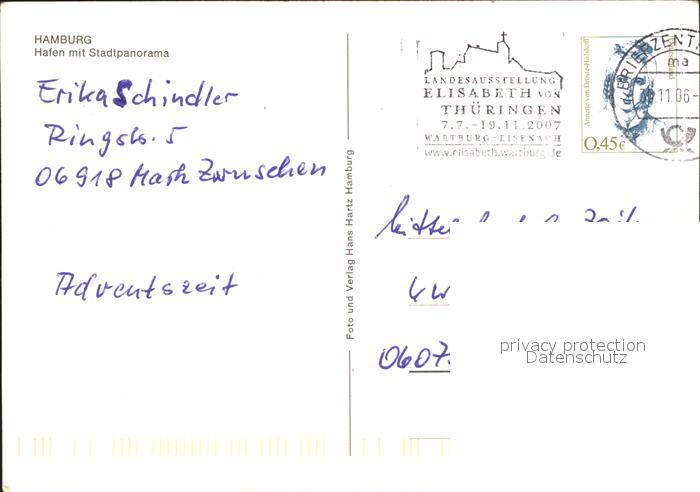 HAMBURG
Hafen mit Stadtpanorama
Erika Schindler
Ringstr. 5
06918 Mark Zwuschen
Adventszeit
Foto und Verlag Hans Hartz Hamburg
LANDESAUSSTELLUNG
ELISABETH VON
THÜRINGEN
7.7.-19.11.2007
WARTBURG-EISENACH
www.elisabeth.wartburg.de
Annette von Droste-Hülshoff
0,45€
BRIEFZENT
ma
.11.06-
0607
privacy protection
Datenschutz